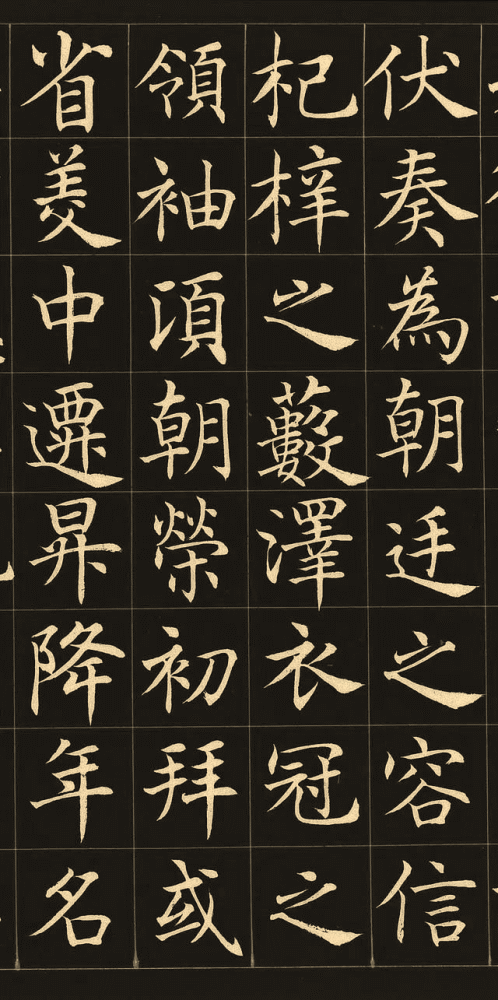 伏奏為朝廷之容信
杞梓之藪澤衣冠之
領袖頃朝榮初拜或
省美中遷昇降年名